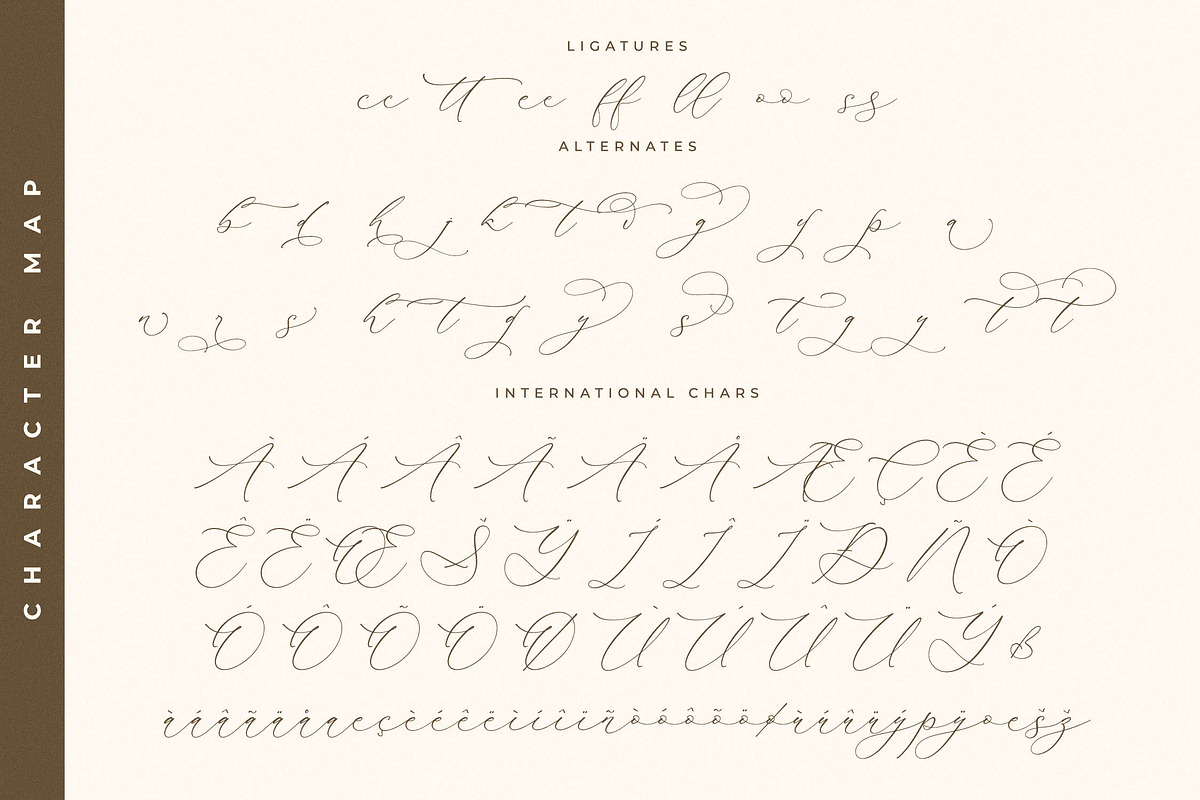 CHARACTER MAP
LIGATURES
cc tt ee ff ll oo ss
ALTERNATES
b d h j k t d g y p a
n r s h t g y s t g y t t
INTERNATIONAL CHARS
À Á Â Ã Ä Å Æ Ç È É
Ê Ë Œ Š Ÿ Í Î Ï Ð Ñ Ò
Ó Ô Õ Ö Ø Ù Ú Û Ü Ý ß
àáâãäåæçèéêëìíîïñòóôõöøùúûüýþÿœšž